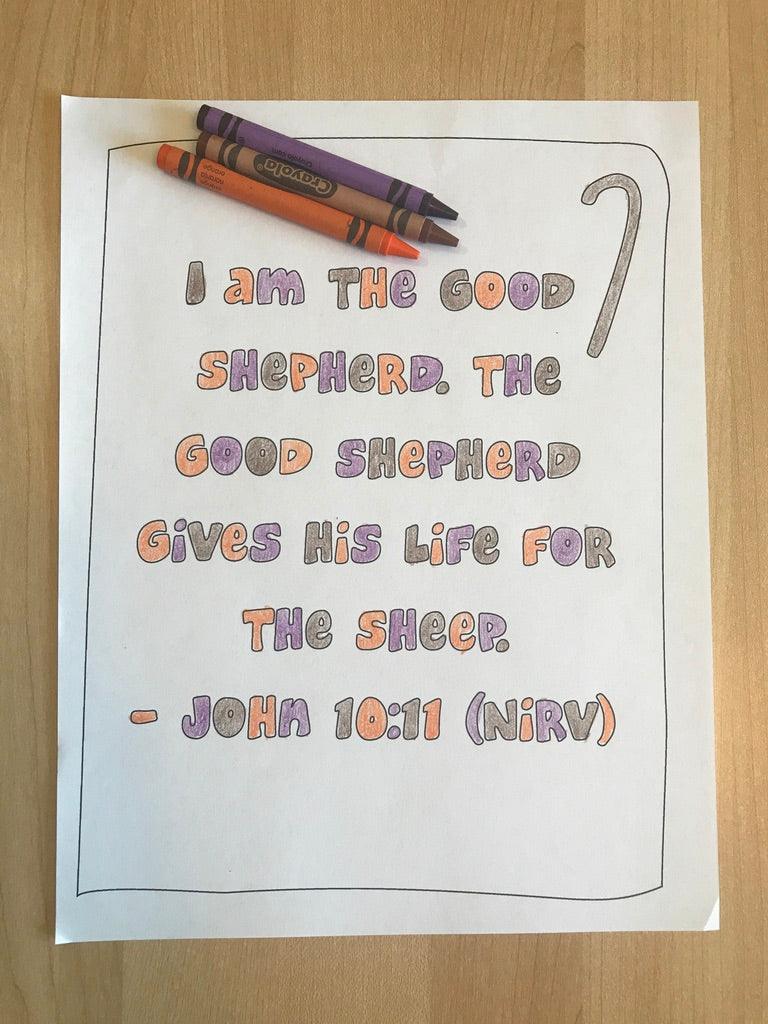 crayola.com
Crayola
orange
naranja
orange
I am THE GOOD
SHEPHERD. THE
GOOD SHEPHERD
GiVeS HiS LiFe FOR
THe SHeeP.
- JOHn 10:11 (NiRV)